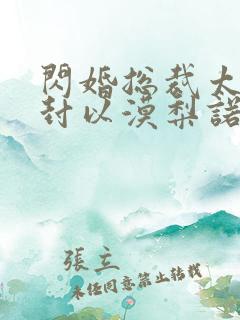 閃婚总裁太
封以漠梨諾
張立
未任同意禁止转载